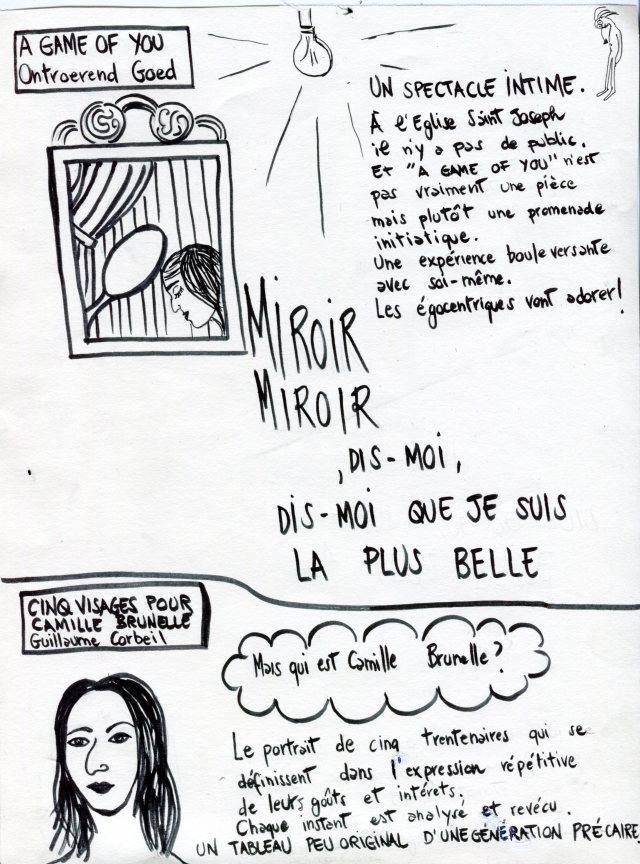 A GAME OF YOU
Ontroerend Goed
UN SPECTACLE INTIME.
À l'Eglise Saint Joseph
il n'y a pas de public.
Et "A GAME OF YOU" n'est
pas vraiment une pièce
mais plutôt une promenade
initiatique.
Une expérience bouleversante
avec soi-même.
Les égocentriques vont adorer!
MIROIR
MIROIR
, DIS-MOI,
DIS-MOI QUE JE SUIS
LA PLUS BELLE
CINQ VISAGES POUR
CAMILLE BRUNELLE
Guillaume Corbeil
Mais qui est Camille Brunelle?
Le portrait de cinq trentenaires qui se
définissent dans l'expression répétitive
de leurs goûts et intérets.
Chaque instant est analysé et revécu.
UN TABLEAU PEU ORIGINAL D'UNE GÉNÉRATION PRÉCAIRE